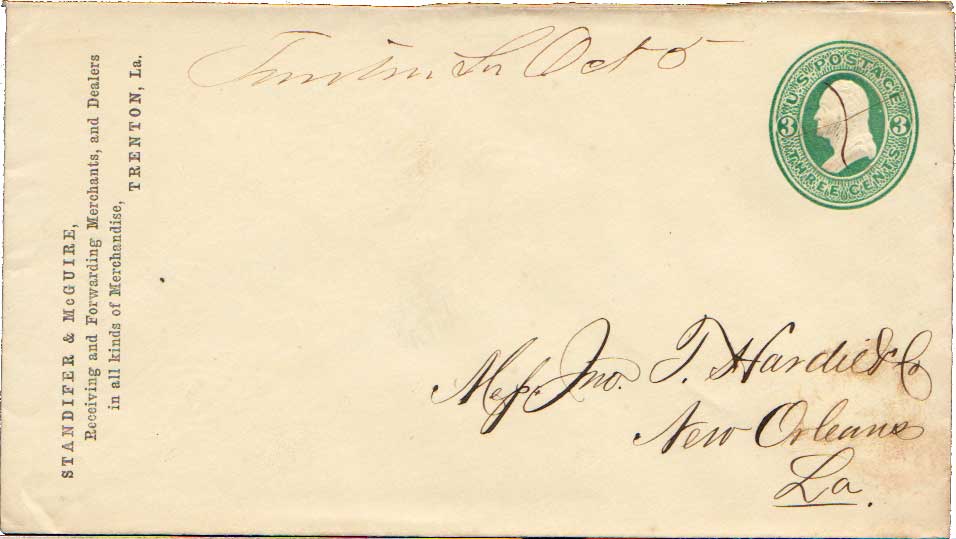 STANDIFER & McGUIRE,
Receiving and Forwarding Merchants, and Dealers
in all kinds of Merchandise,
TRENTON, La.
Trenton La Oct 5
U.S. POSTAGE
3 3
THREE CENTS
Messrs. Jno. T. Hardie & Co
New Orleans
La.